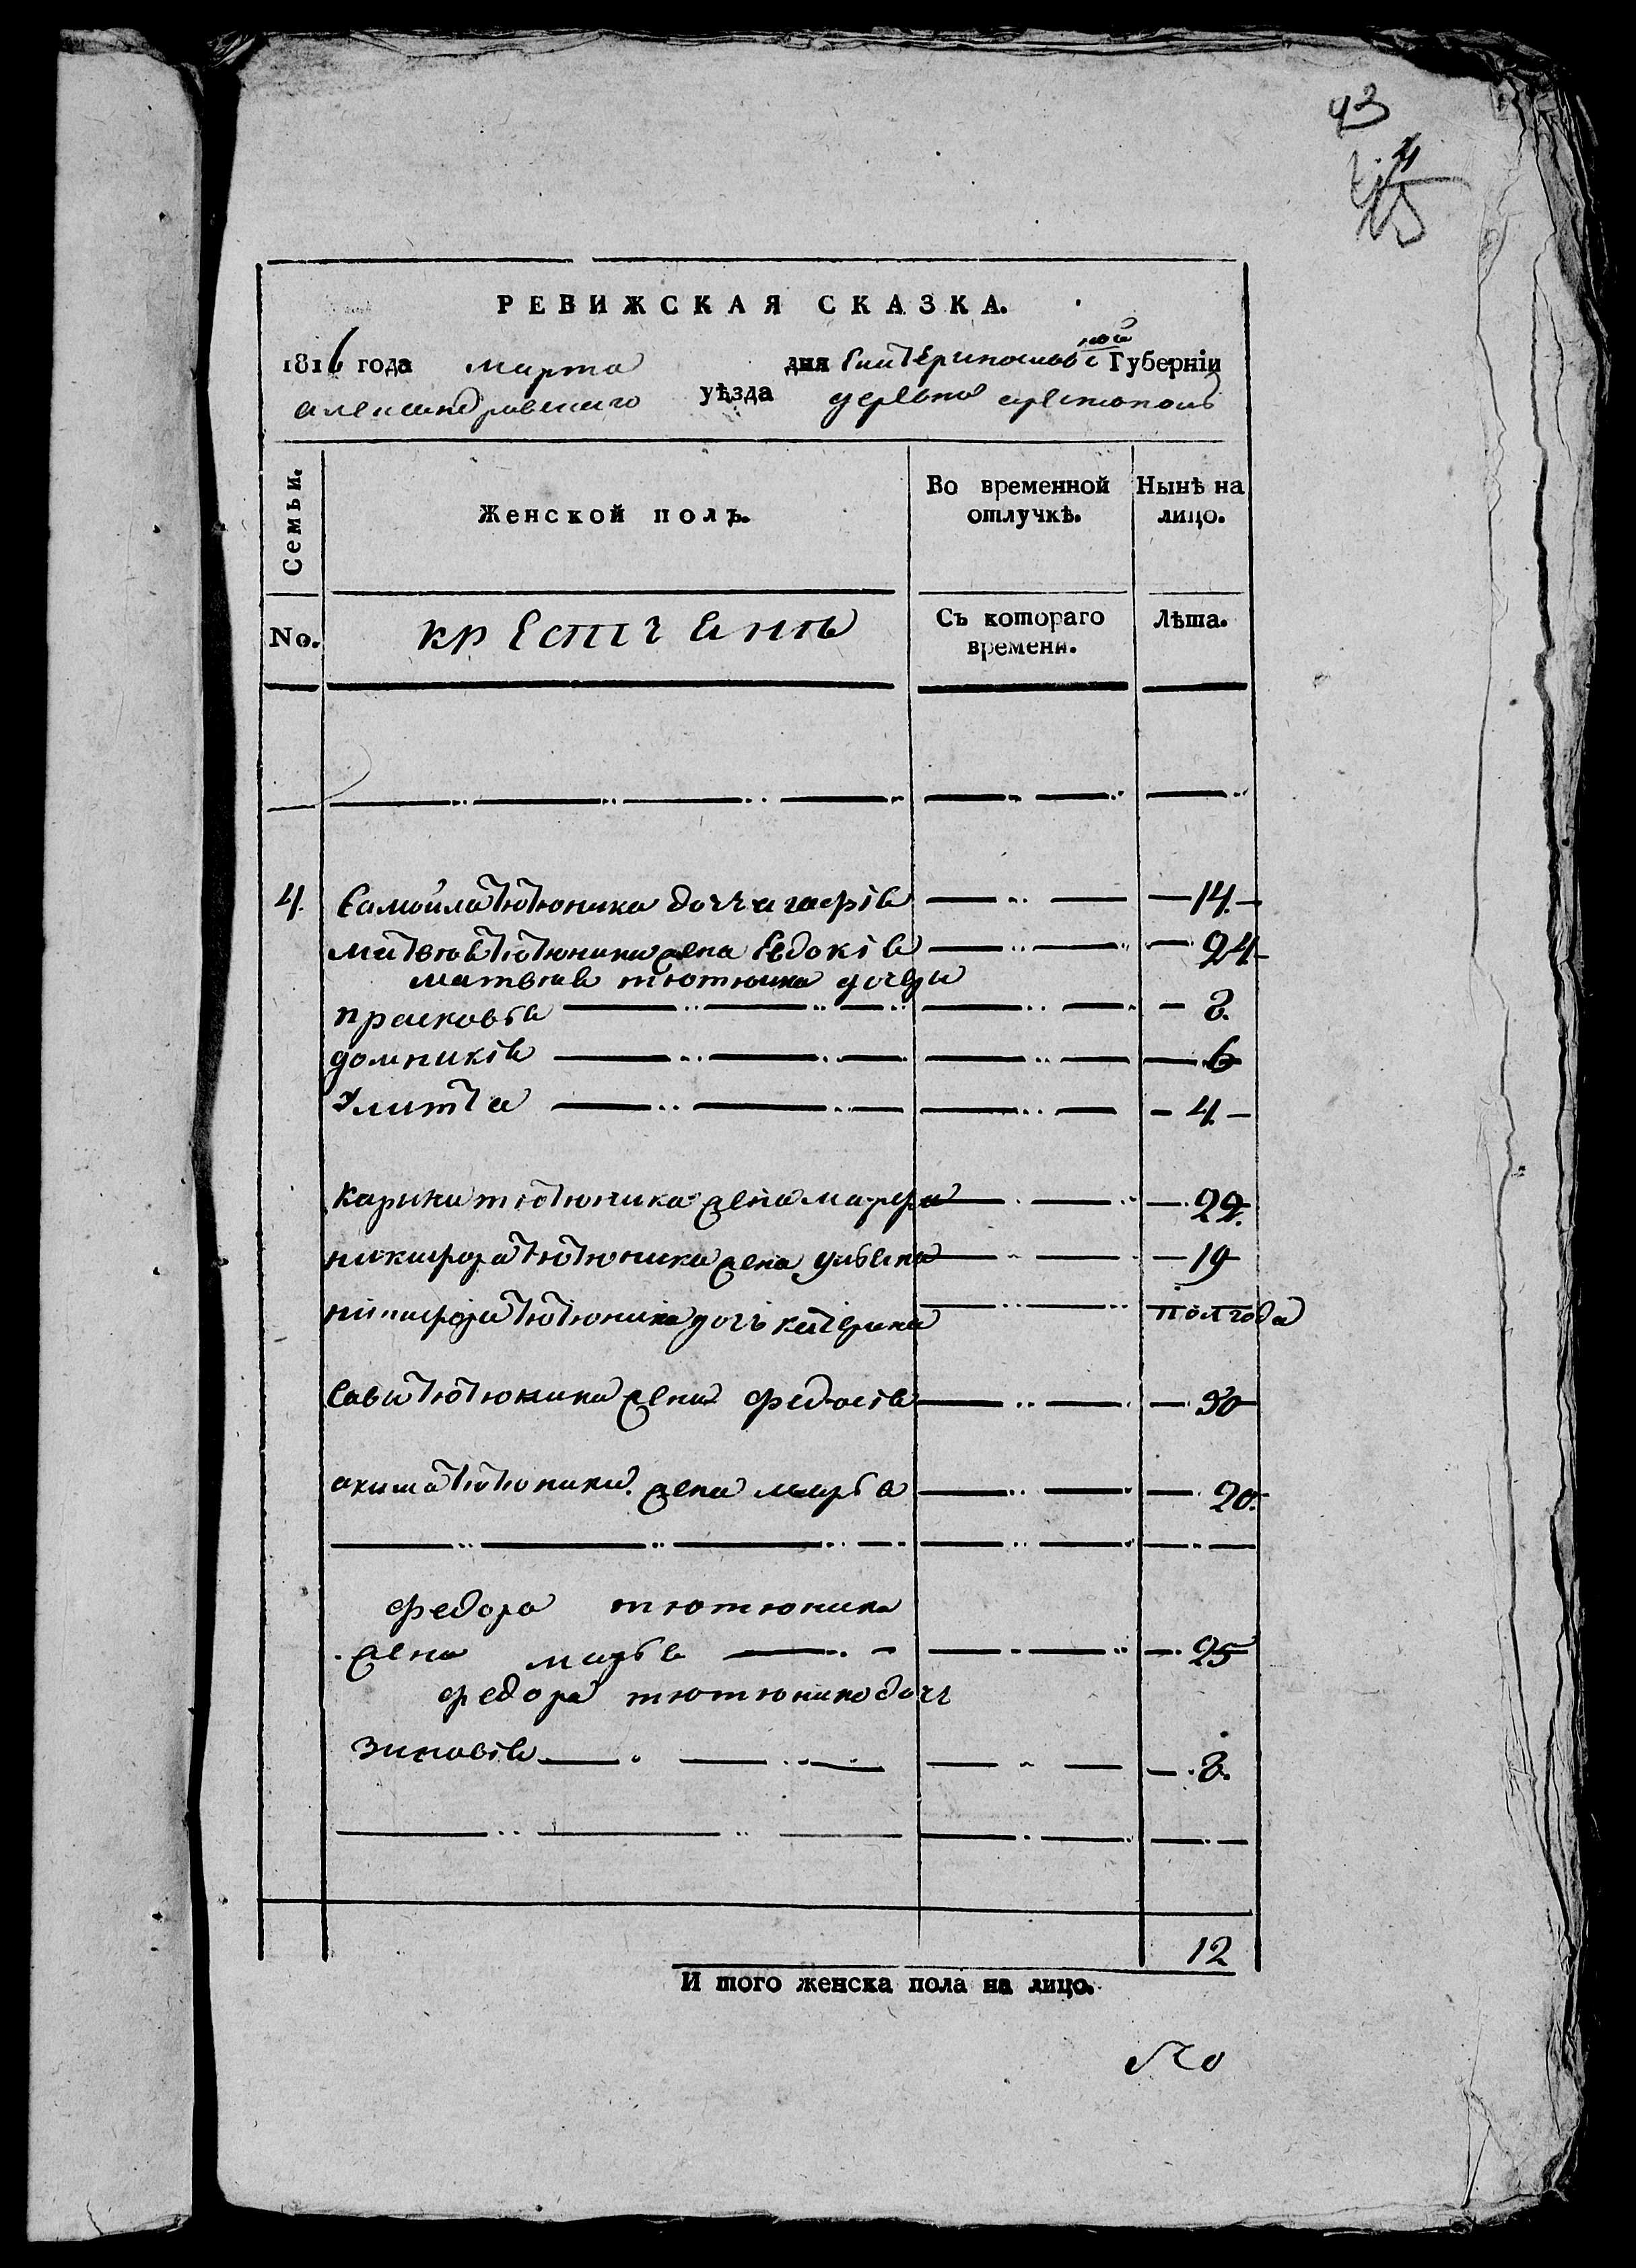 43
РЕВИЖСКАЯ СКАЗКА.
1816 года марта дня Екатеринославской Губерніи
александровскаго уѣзда деревня
Семьи. Женской полъ. Во временной отлучкѣ. Нынѣ на лицо.
No. крестияне Съ котораго времени. Лѣта.
4. Самойла тютюника дочь агафія 14.
матвѣя тютюника жена Евдокія 24
матвѣя тютюника дочери
прасковья 8.
домникія 6
Улита 4.
тютюника жена 22.
никифора тютюника жена ульяна 19
никифора тютюника дочь катерина полгода
Сави тютюника жена федосія 30
акима тютюника жена марья 20.
федора тютюника
жена марья 25
федора тютюника дочь
Зиновія 8.
12
И того женска пола на лицо.